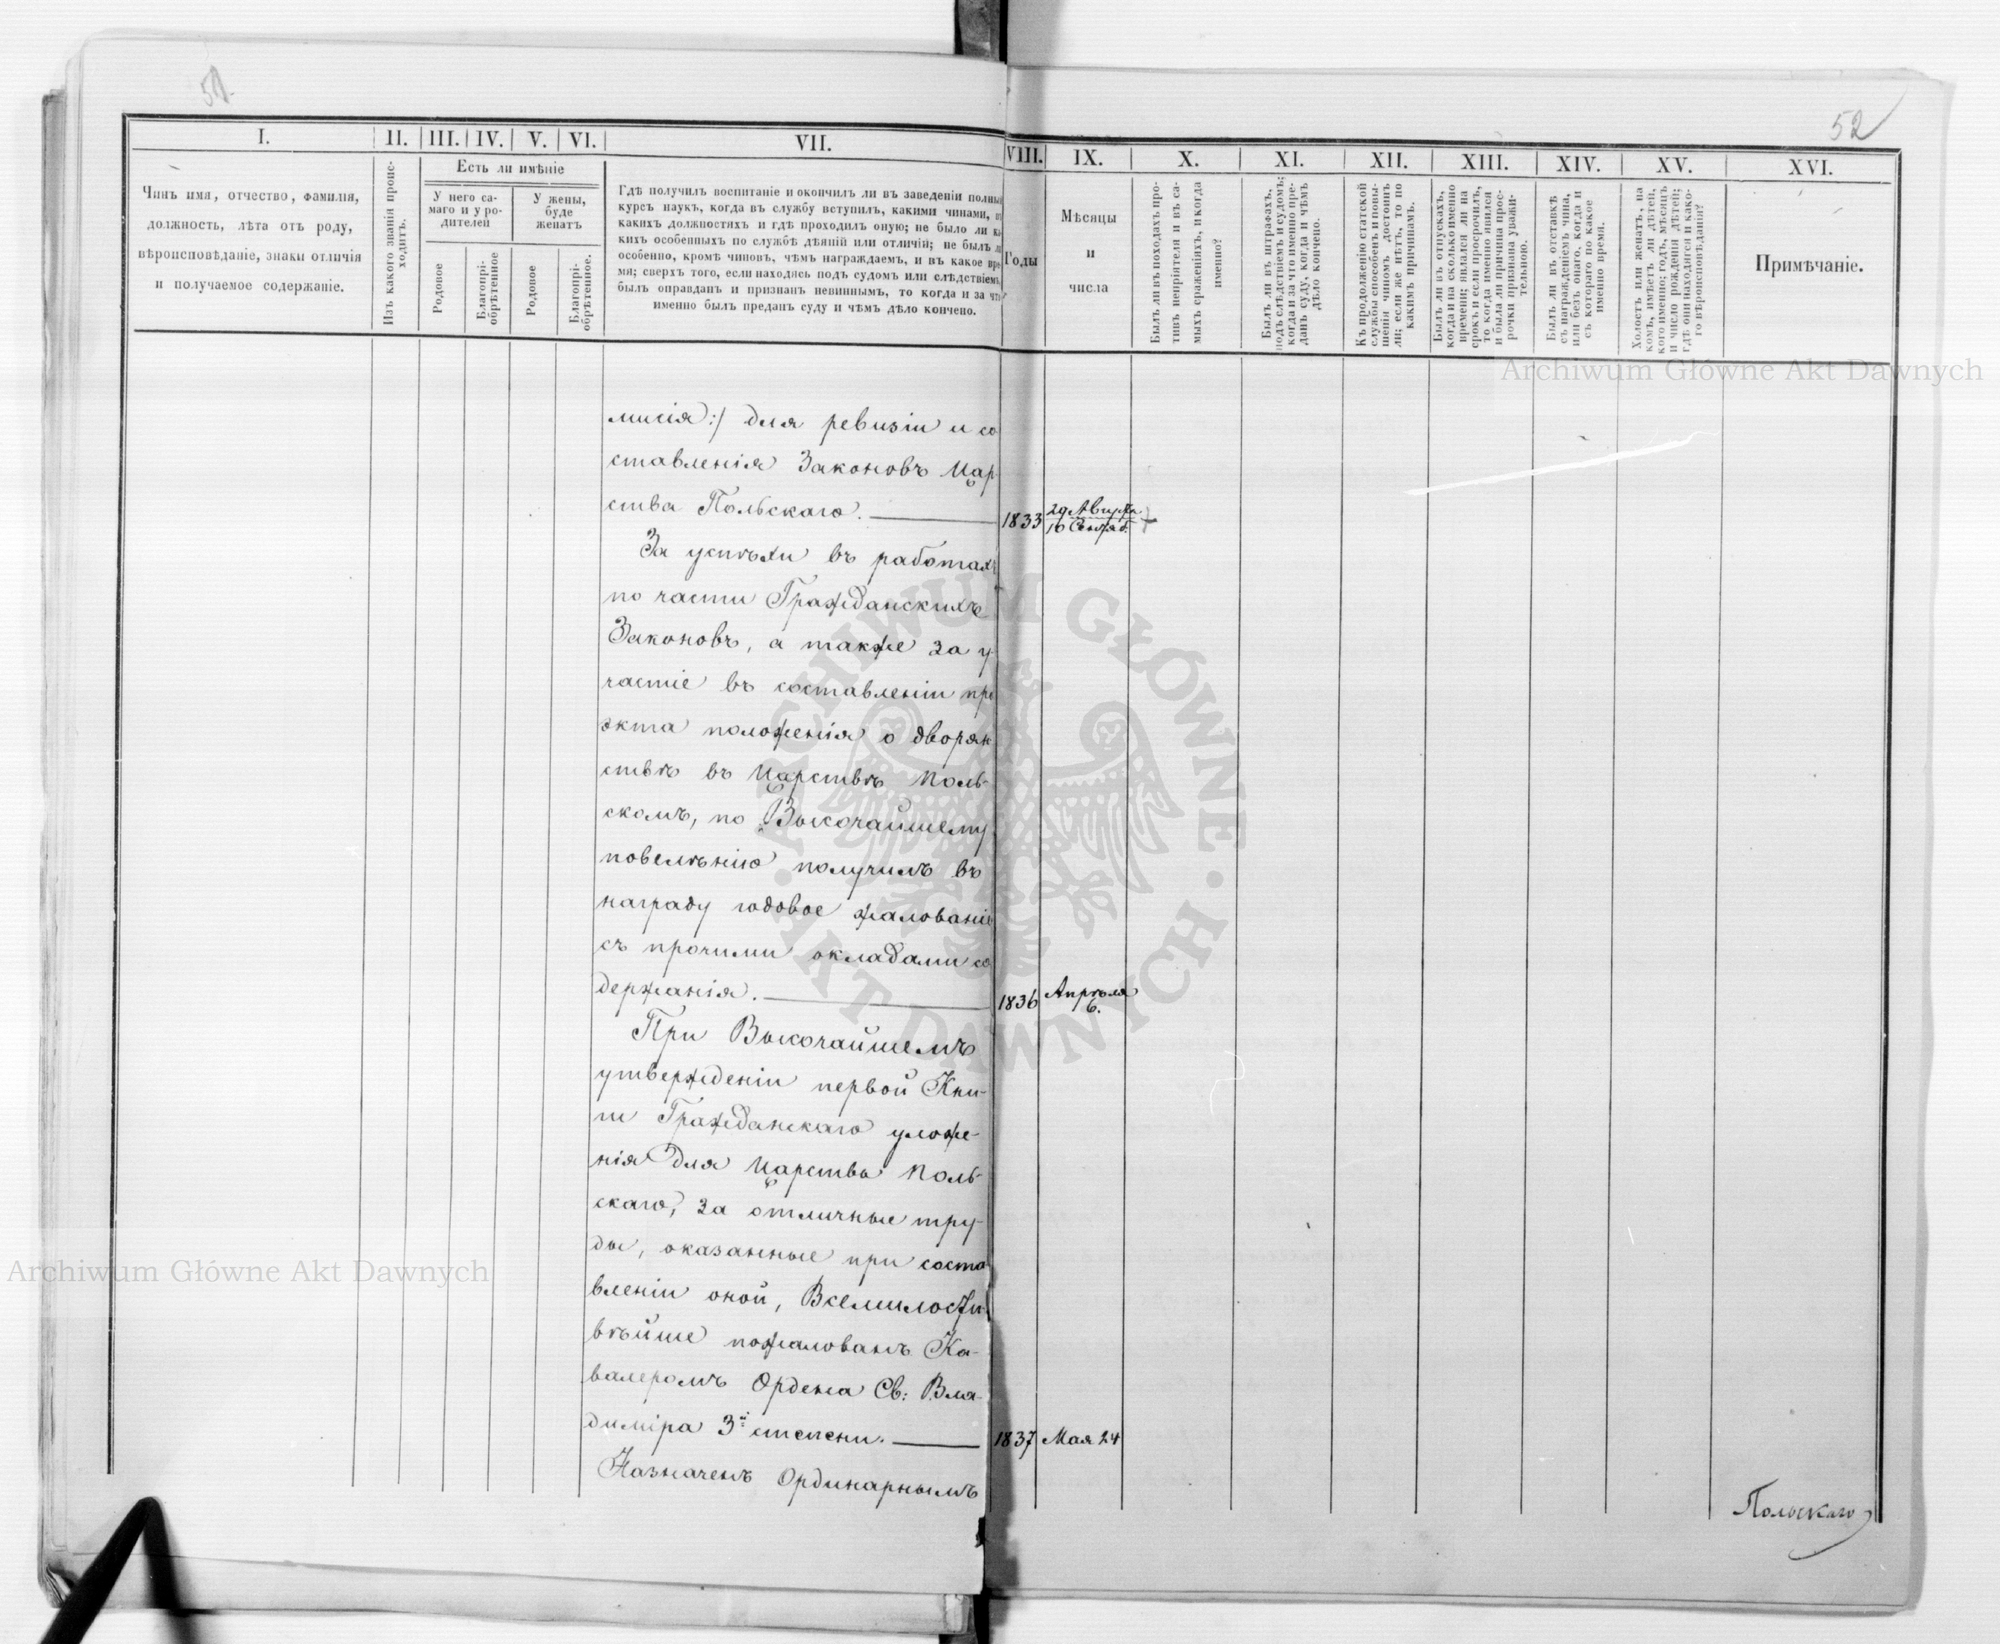 51.
52
I.
II.
III.
IV.
V.
VI.
VII.
VIII.
IX.
X.
XI.
XII.
XIII.
XIV.
XV.
XVI.
Чинъ имя, отчество, фамилія,
должность, лѣта отъ роду,
вѣроисповѣданіе, знаки отличія
и получаемое содержаніе.
Изъ какого званія проис-
ходитъ.
Есть ли имѣніе
У него са-
маго и у ро-
дителей
У жены,
буде
женатъ
Родовое
Благопрі-
обрѣтенное
Родовое
Благопрі-
обрѣтенное.
Гдѣ получилъ воспитаніе и окончилъ ли въ заведеніи полный
курсъ наукъ, когда въ службу вступилъ, какими чинами, въ
какихъ должностяхъ и гдѣ проходилъ оную; не было ли ка-
кихъ особенныхъ по службѣ дѣяній или отличій; не былъ ли
особенно, кромѣ чиновъ, чѣмъ награждаемъ, и въ какое вре-
мя; сверхъ того, если находясь подъ судомъ или слѣдствіемъ,
былъ оправданъ и признанъ невиннымъ, то когда и за что
именно былъ преданъ суду и чѣмъ дѣло кончено.
Годы
Мѣсяцы
и
числа
Былъ ли въ походахъ про-
тивъ непріятеля и въ са-
мыхъ сраженіяхъ, и когда
именно?
Былъ ли въ штрафахъ,
подъ слѣдствіемъ и судомъ;
когда и за что именно пре-
данъ суду, когда и чѣмъ
дѣло кончено.
Къ продолженію статской
службы способенъ и повы-
шенія чиномъ достоинъ
ли; если же нѣтъ, то по
какимъ причинамъ.
Былъ ли въ отпускахъ,
когда и на сколько именно
времени; явился ли на
срокъ и если просрочилъ,
то когда именно явился
и была ли причина прос-
рочки признана уважи-
тельною.
Былъ ли въ отставкѣ
съ награжденіемъ чина,
или безъ онаго, когда и
съ котораго по какое
именно время.
Холостъ или женатъ, на
комъ, имѣетъ ли дѣтей,
кого именно; годъ, мѣсяцъ
и число рожденія дѣтей;
гдѣ они находятся и како-
го вѣроисповѣданія?
Примѣчаніе.
Archiwum Główne Akt Dawnych
мисія:/ для ревизіи и со
ставленія Законовъ Цар-
ства Польскаго.
1833
29 Августа
10 Сентяб.
За успѣхи въ работахъ
по части Гражданскихъ
Законовъ, а также за у-
частіе въ составленіи про
экта положенія о дворян
ствѣ въ Царствѣ Поль-
скомъ, по Высочайшему
повелѣнію получилъ въ
награду годовое жалованіе
съ прочими окладами со
держанія.
1836
Апрѣля
6.
При Высочайшемъ
утвержденіи первой Кни-
ги Гражданскаго уложе-
нія для Царства Поль-
скаго, за отличные тру-
ды, оказанные при соста
вленіи оной, Всемилости
вѣйше пожалованъ Ка-
валеромъ Ордена Св: Вла-
диміра 3й степени.
1837
Мая 24
Назначенъ Ординарнымъ
Польскаго
ARCHIWUM GŁÓWNE · AKT DAWNYCH ·
Archiwum Główne Akt Dawnych